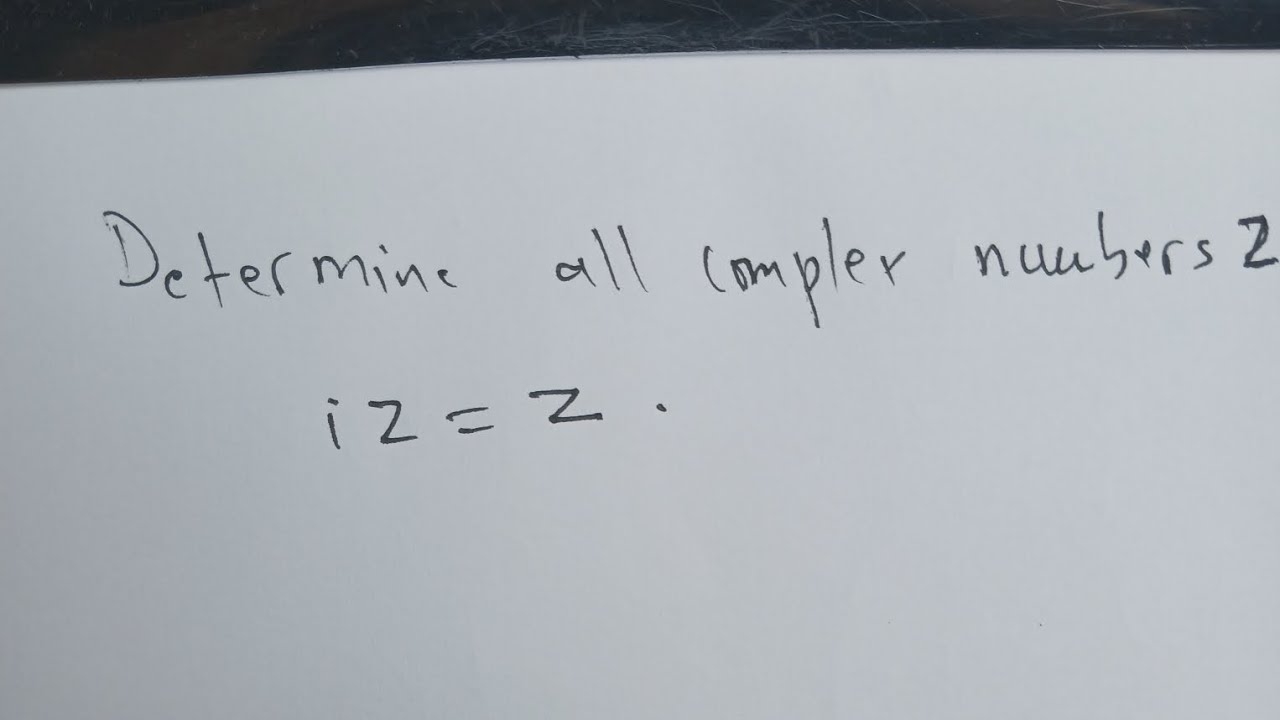 Determine all complex numbers z
iz = z.